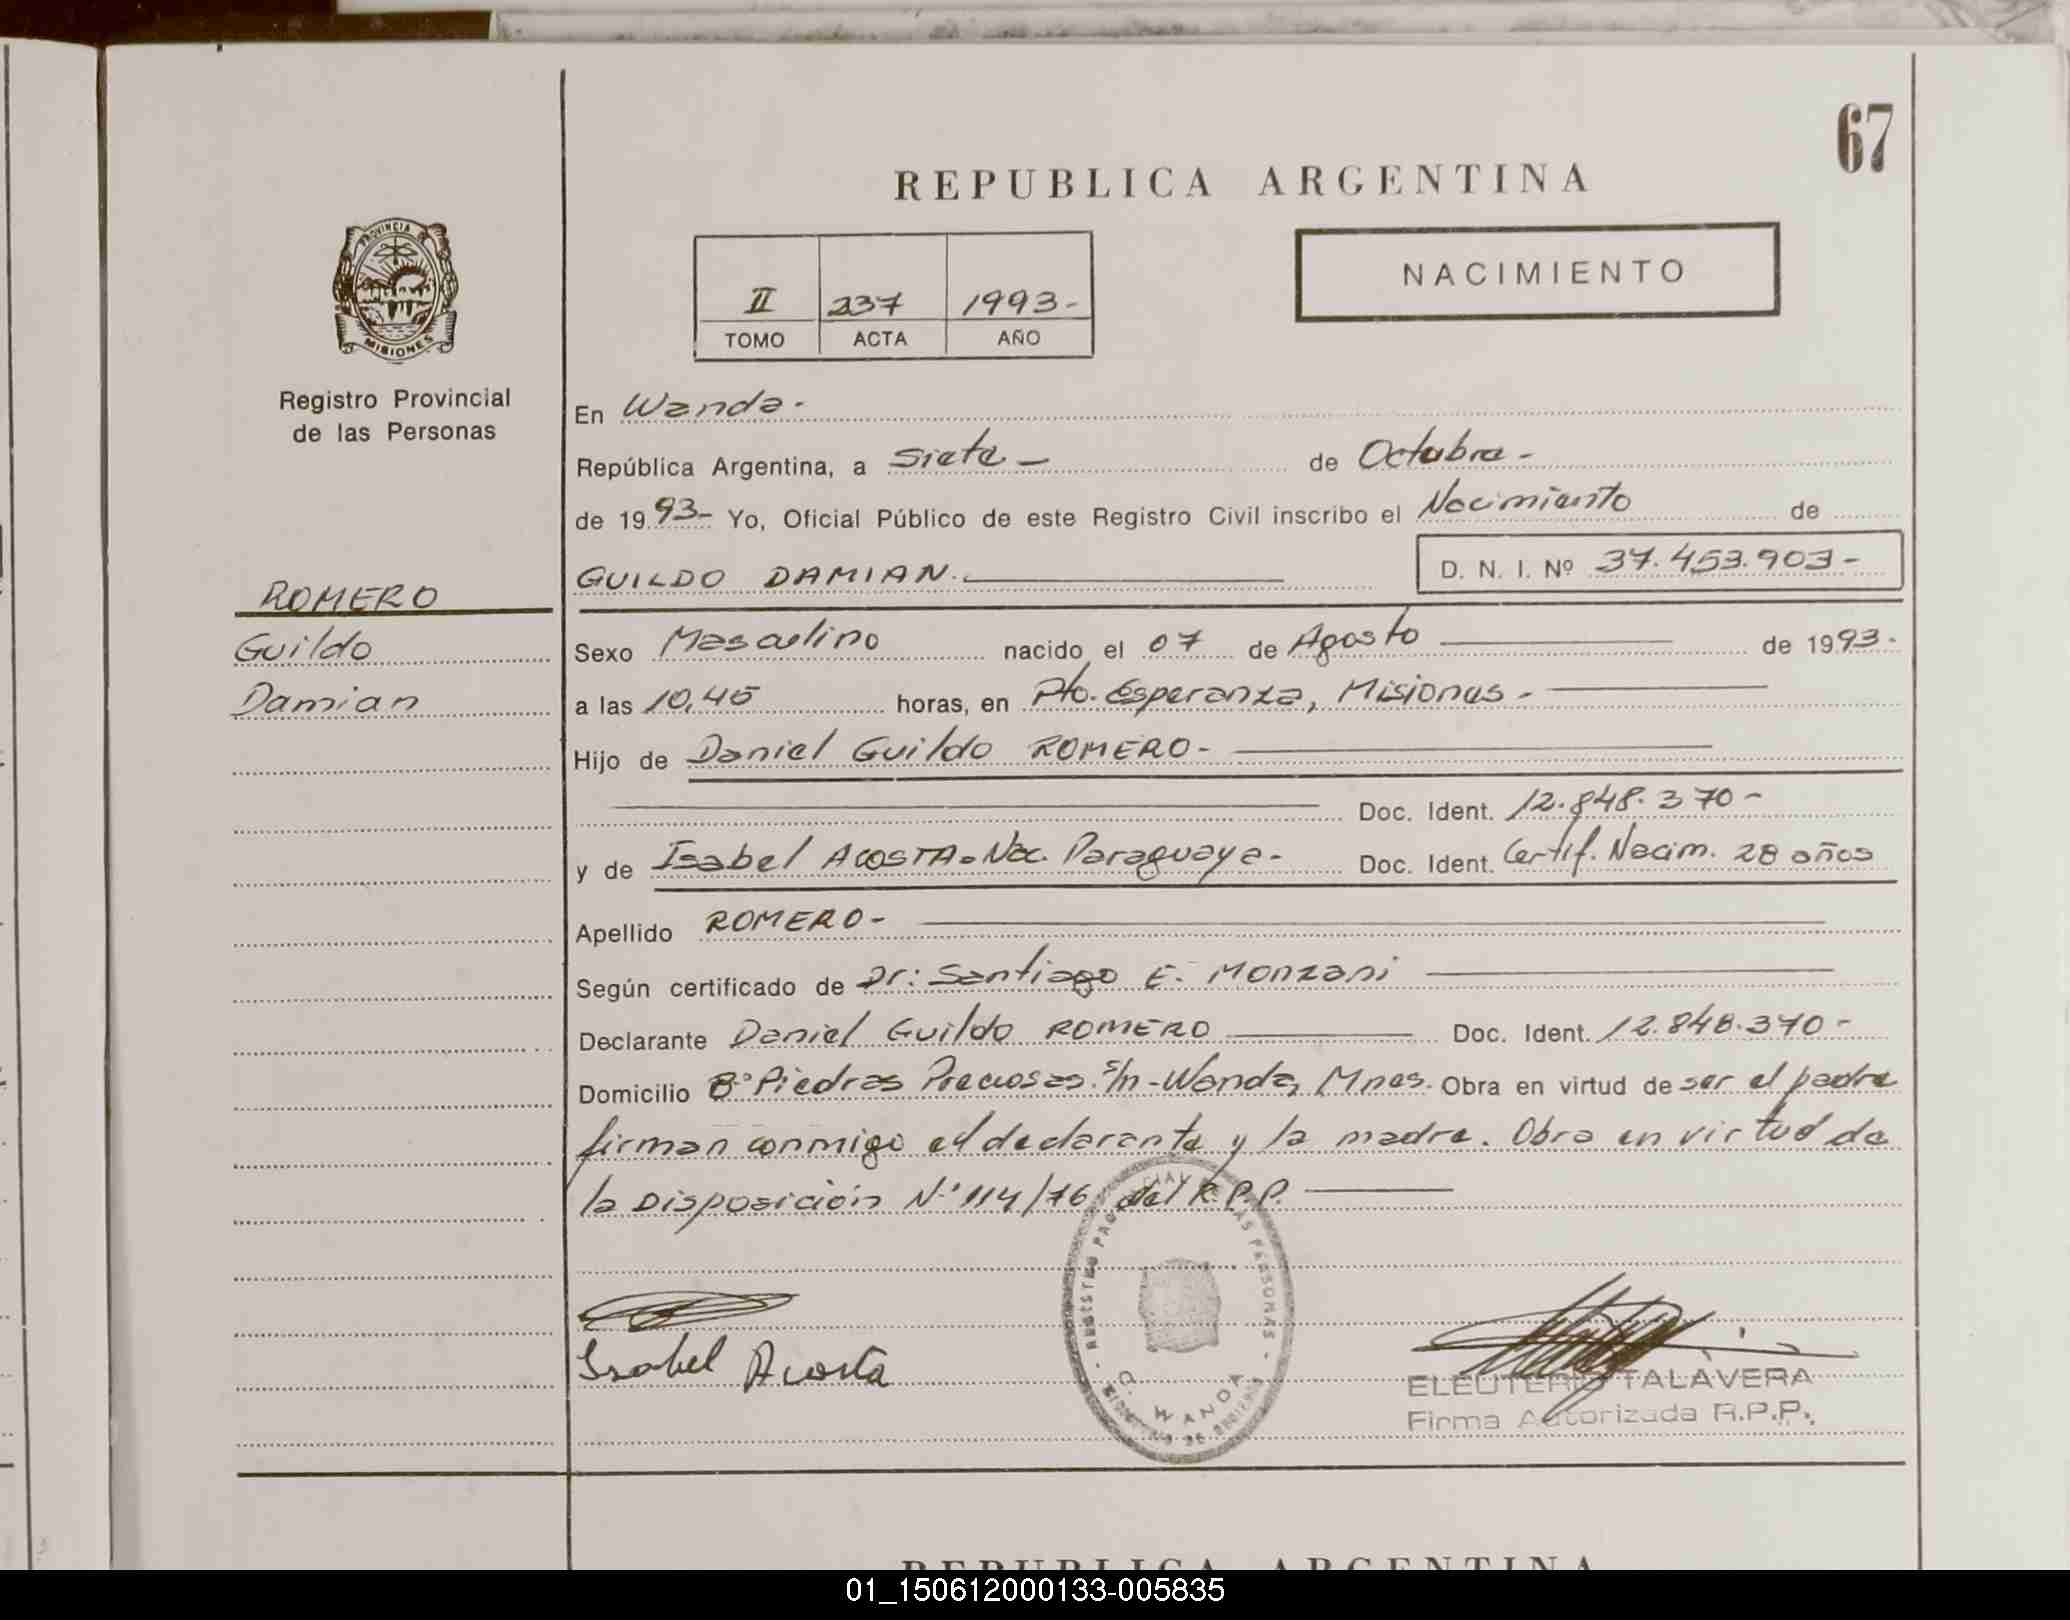 67
REPUBLICA ARGENTINA
PROVINCIA DE
MISIONES
Registro Provincial
de las Personas
II 237 1993-
TOMO ACTA AÑO
NACIMIENTO
En Wanda.
República Argentina, a Siete - de Octubre -
de 1993- Yo, Oficial Público de este Registro Civil inscribo el Nacimiento de
GUILDO DAMIAN. D. N. I. Nº 37.453.903-
ROMERO
Guildo
Damian
Sexo Masculino nacido el 07 de Agosto de 1993.
a las 10,45 horas, en Pto. Esperanza, Misiones -
Hijo de Daniel Guildo ROMERO-
Doc. Ident. 12.848.370-
y de Isabel ACOSTA - Nac. Paraguaya- Doc. Ident. Certif. Nacim. 28 años
Apellido ROMERO-
Según certificado de Dr: Santiago E. Monzani
Declarante Daniel Guildo ROMERO Doc. Ident. 12.848.370-
Domicilio Bº Piedras Preciosas. s/n - Wanda, Mnes. Obra en virtud de ser el padre
firman conmigo el declarante y la madre. Obra en virtud de
la Disposición Nº 114/76 del R.P.P.
Isabel Acosta
REGISTRO PROVINCIAL DE LAS PERSONAS
WANDA
ELEUTERIO TALAVERA
Firma Autorizada R.P.P.
REPUBLICA ARGENTINA
01_150612000133-005835